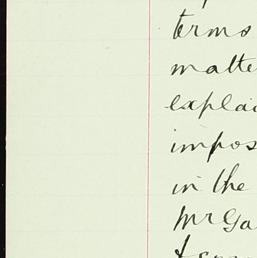 terms
matte
explai
impos
in the
Mr Ga